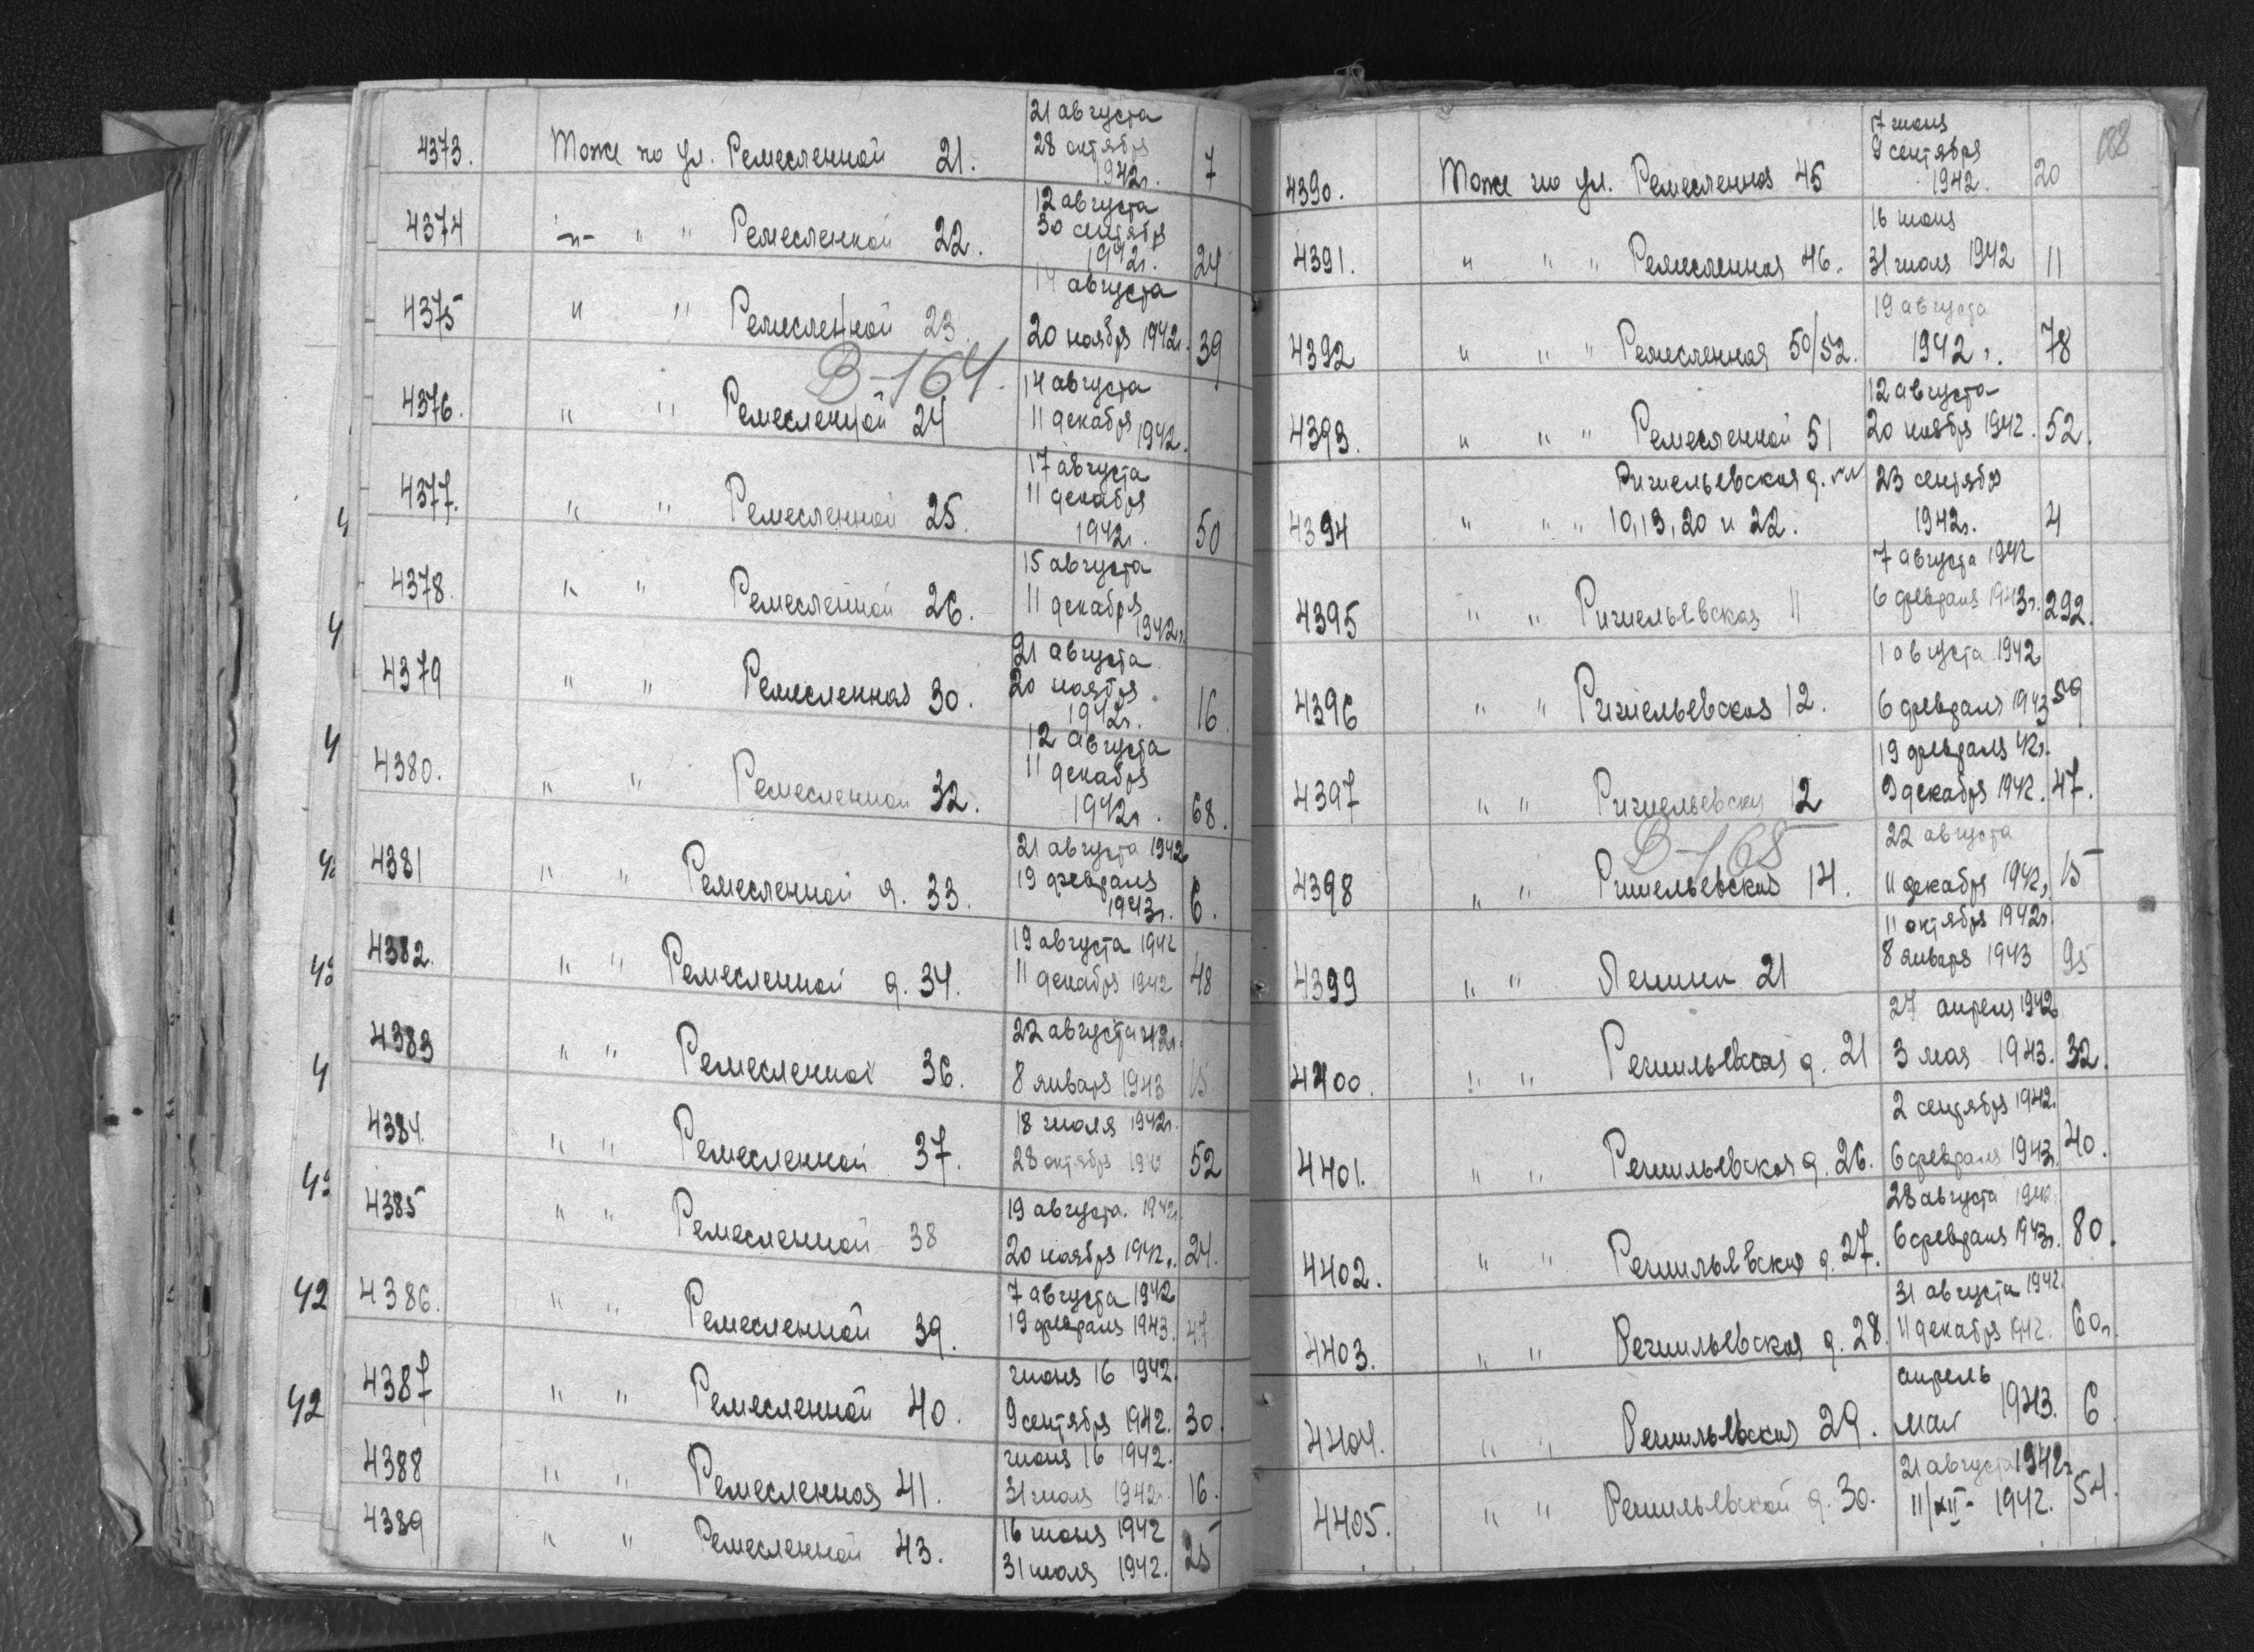 21 августа
4373. Тоже по ул. Ремесленной 21. 28 октября 7
1942г.
12 августа
4374 -"- " " Ремесленной 22. 30 сентября
1942г. 24
14 августа
4375 " " Ремесленной 23. 20 ноября 1942г. 39
В-164.
14 августа
4376. " " Ремесленной 24 11 декабря 1942.
17 августа
4377. " " Ремесленной 25. 11 декабря
1942г. 50
15 августа
4378. " " Ремесленной 26. 11 декабря
1942г.
21 августа
4379 " " Ремесленная 30. 20 ноября
1942г. 16
12 августа
4380. " " Ремесленной 32. 11 декабря
1942г. 68.
21 августа 1942
4381 " " Ремесленной д. 33. 19 февраля
1943г. 6.
19 августа 1942
4382. " " Ремесленной д. 34. 11 декабря 1942 48
22 августа 42г.
4383 " " Ремесленной 36. 8 января 1943 15
18 июля 1942г.
4384. " " Ремесленной 37. 28 октября 194 52
19 августа. 1942г.
4385 " " Ремесленной 38 20 ноября 1942г. 24.
7 августа 1942
42 4386. " " Ремесленной 39. 19 февраля 1943. 47
июня 16 1942.
42 4387 " " Ремесленной 40. 9 сентября 1942. 30.
июня 16 1942.
4388 " " Ремесленная 41. 31 июля 1942г. 16.
16 июня 1942
4389 " " Ремесленной 43. 31 июля 1942. 25
188
17 июня
9 сентября
4390. Тоже по ул. Ремесленная 45 1942. 20
16 июня
4391. " " " Ремесленная 46. 31 июля 1942 11
19 августа
4392 " " " Ремесленная 50/52. 1942 г. 78
12 августа
4393. " " " Ремесленной 51 20 ноября 1942. 52.
Ришельевская д. 23 сентября
4394 " " " 10,13,20 и 22. 1942г. 4
7 августа 1942
4395 " " Ришельевская 11 6 февраля 1943г. 292.
1 августа 1942
4396 " " Ришельевская 12. 6 февраля 1943 59
19 февраля 42г.
4397 " " Ришельевская 12 9 декабря 1942. 47.
В-165
22 августа
4398 " " Ришельевская 14. 11 декабря 1942г. 15
11 октября 1942г.
4399 " " Ленина 21 8 января 1943 95
27 апреля 1942
4400. " " Решильевская д. 21 3 мая 1943. 32.
2 сентября 1942.
4401. " " Решильевская д. 26. 6 февраля 1943г. 40.
28 августа 1942.
4402. " " Решильевская д. 27. 6 февраля 1943г. 80.
31 августа 1942.
4403. " " Решильевская д. 28. 11 декабря 1942. 60
апрель
4404. " " Решильевская 29. мая 1943. 6
21 августа 1942г.
4405. " " Решильевской д. 30. 11/XII- 1942. 54.